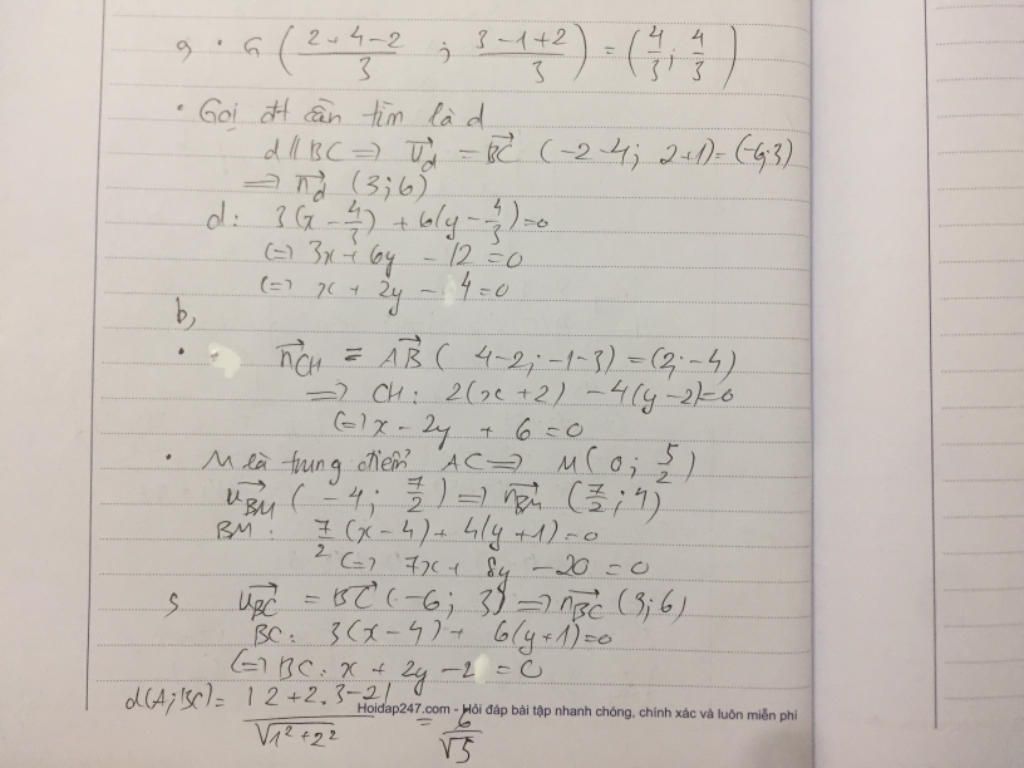 a, • G ( (2+4-2)/3 ; (3-1+2)/3 ) = ( 4/3 ; 4/3 )
• Gọi đt cần tìm là d
d // BC => u⃗_d = BC⃗ (-2-4; 2+1) = (-6;3)
=> n⃗_d (3;6)
d: 3(x - 4/3) + 6(y - 4/3) = 0
<=> 3x + 6y - 12 = 0
<=> x + 2y - 4 = 0
b,
• n⃗_CH = AB⃗ ( 4-2; -1-3) = (2; -4)
=> CH: 2(x+2) - 4(y-2) = 0
<=> x - 2y + 6 = 0
• M là trung điểm AC => M( 0; 5/2 )
u⃗_BM ( -4; 7/2 ) => n⃗_BM ( 7/2 ; 4)
BM: 7/2 (x-4) + 4(y+1) = 0
<=> 7x + 8y - 20 = 0
u⃗_BC = BC⃗ (-6; 3) => n⃗_BC (3;6)
BC: 3(x-4) + 6(y+1) = 0
<=> BC: x + 2y - 2 = 0
d(A;BC) = |2+2.3-2| / √(1²+2²) = 6/√5
Hoidap247.com - Hỏi đáp bài tập nhanh chóng, chính xác và luôn miễn phí